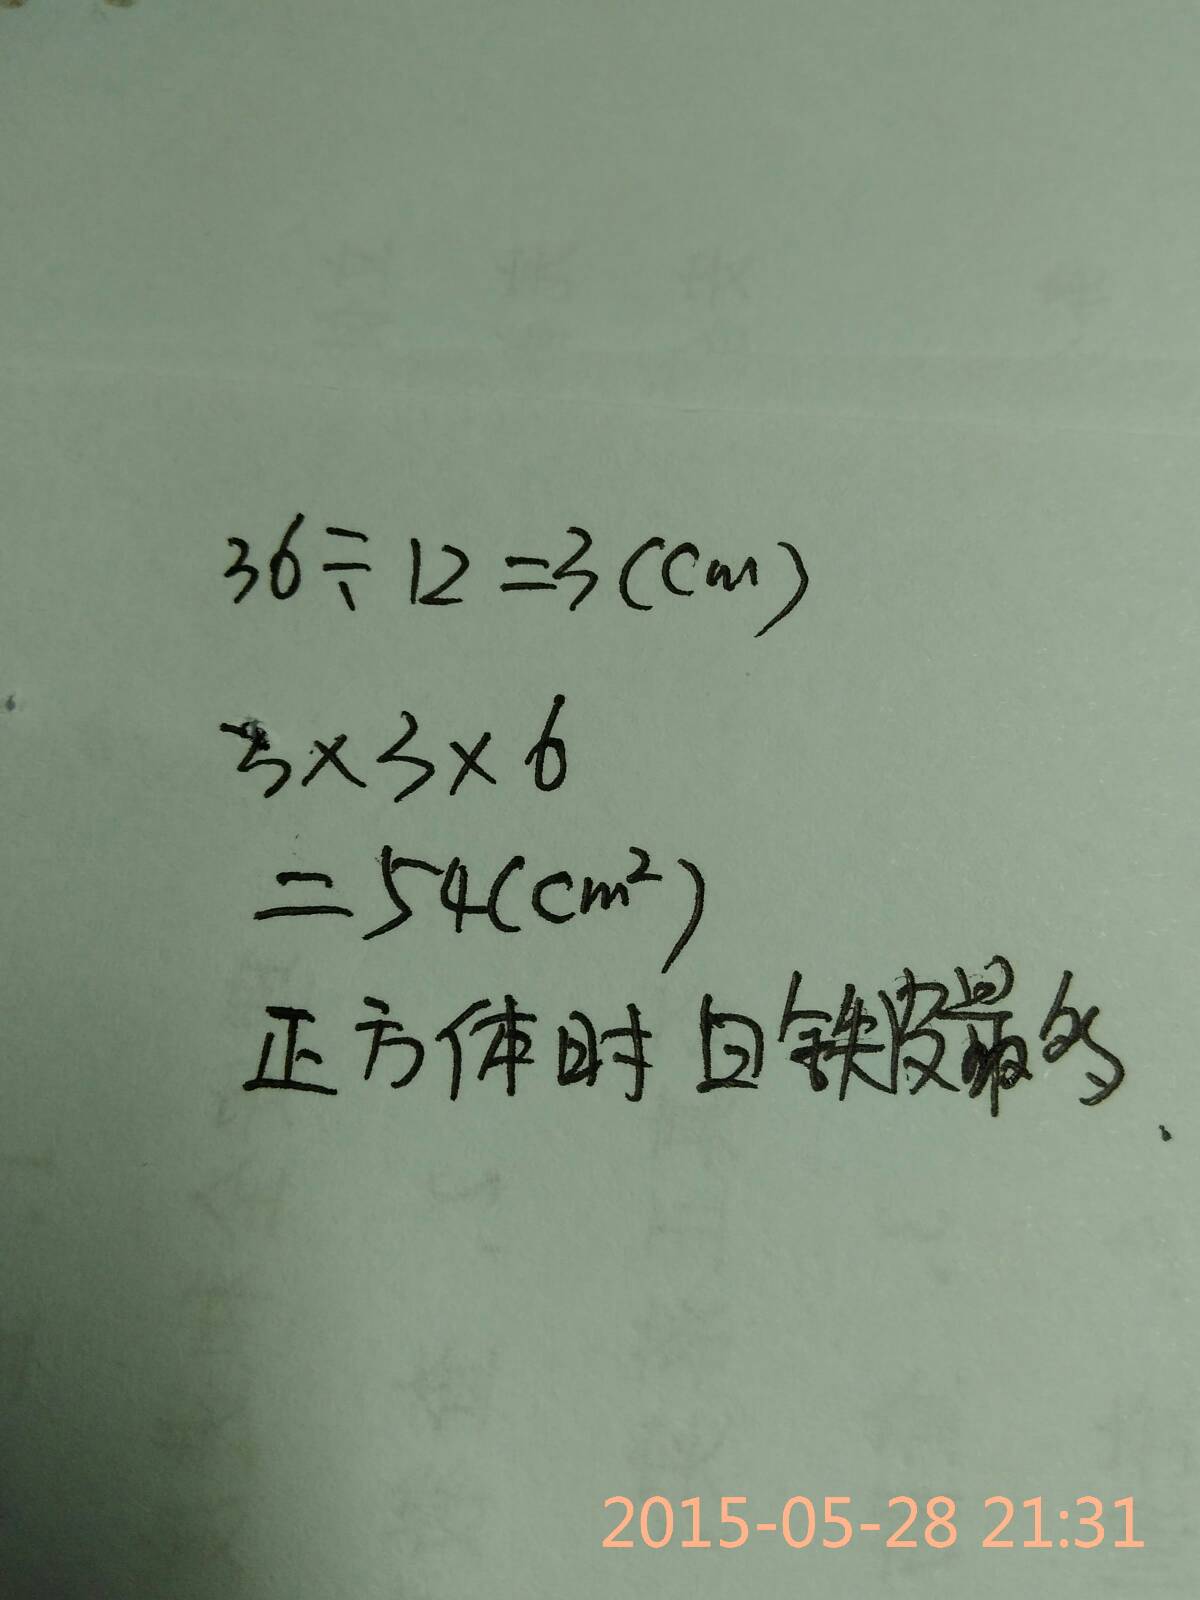 36÷12=3(cm)
3×3×6
=54(cm²)
正方体时白铁皮最多.
2015-05-28 21:31